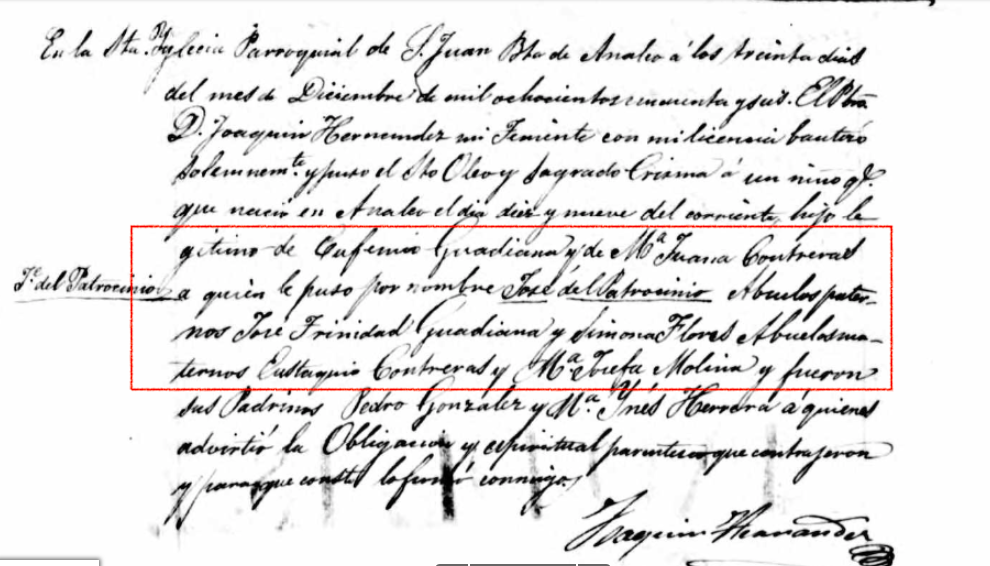 En la Sta. Yglecia Parroquial de S. Juan Bta de Analco á los treinta dias
del mes de Diciembre de mil ochocientos cincuenta y seis. El Pbro
D. Joaquin Hernandez mi Teniente con mi licencia bautizó
Solemnemte. y puso el Sto Oleo y Sagrado Crisma á un niño
que nació en Analco el dia diez y nueve del corriente, hijo le
gitimo de Eufemio Guadiana y de Ma. Juana Contreras
Je. del Patrocinio
a quien le puso por nombre José del Patrocinio Abuelos pater-
nos José Trinidad Guadiana y Simona Flores Abuelos ma-
ternos Eustaquio Contreras y Ma. Josefa Molina y fueron
sus Padrinos Pedro González y Ma. Ynés Herrera á quienes
advirtió la Obligacion y espiritual parentesco que contrageron
y para que conste lo firmó conmigo
Joaquin Hernandez